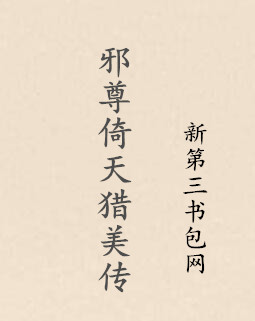 邪尊倚天猎美传
新第三书包网